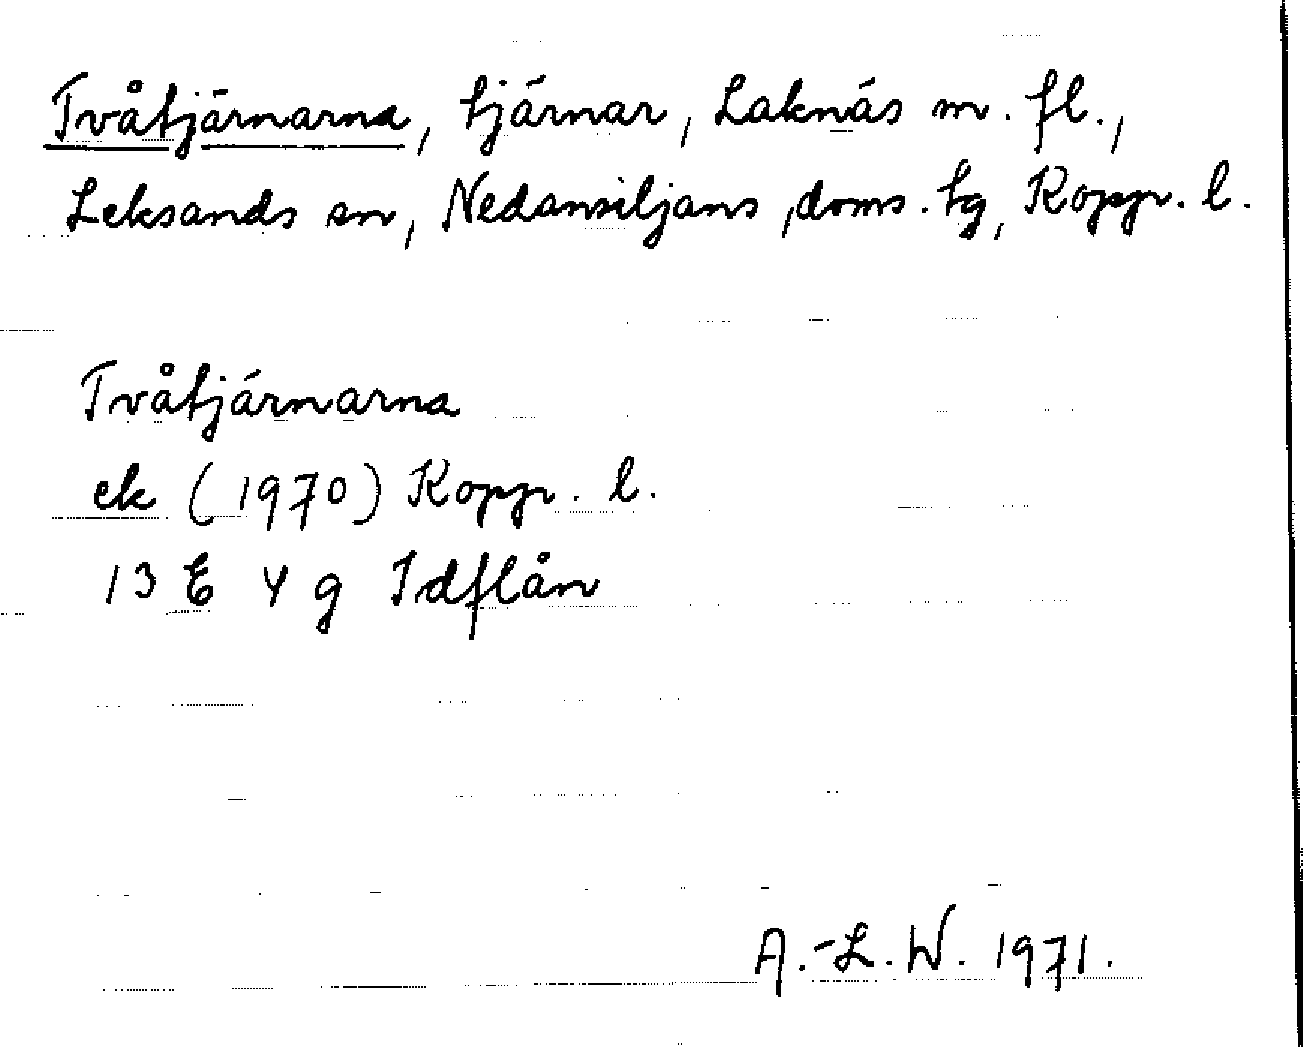 Tvåtjärnarna, tjärnar, Laknäs m. fl.,
Leksands sn, Nedansiljans, doms. tg, Kopp. l.
Tvåtjärnarna
ek (1970) Kopp. l.
13 E 4 g Idflån
A.-L. W. 1971.